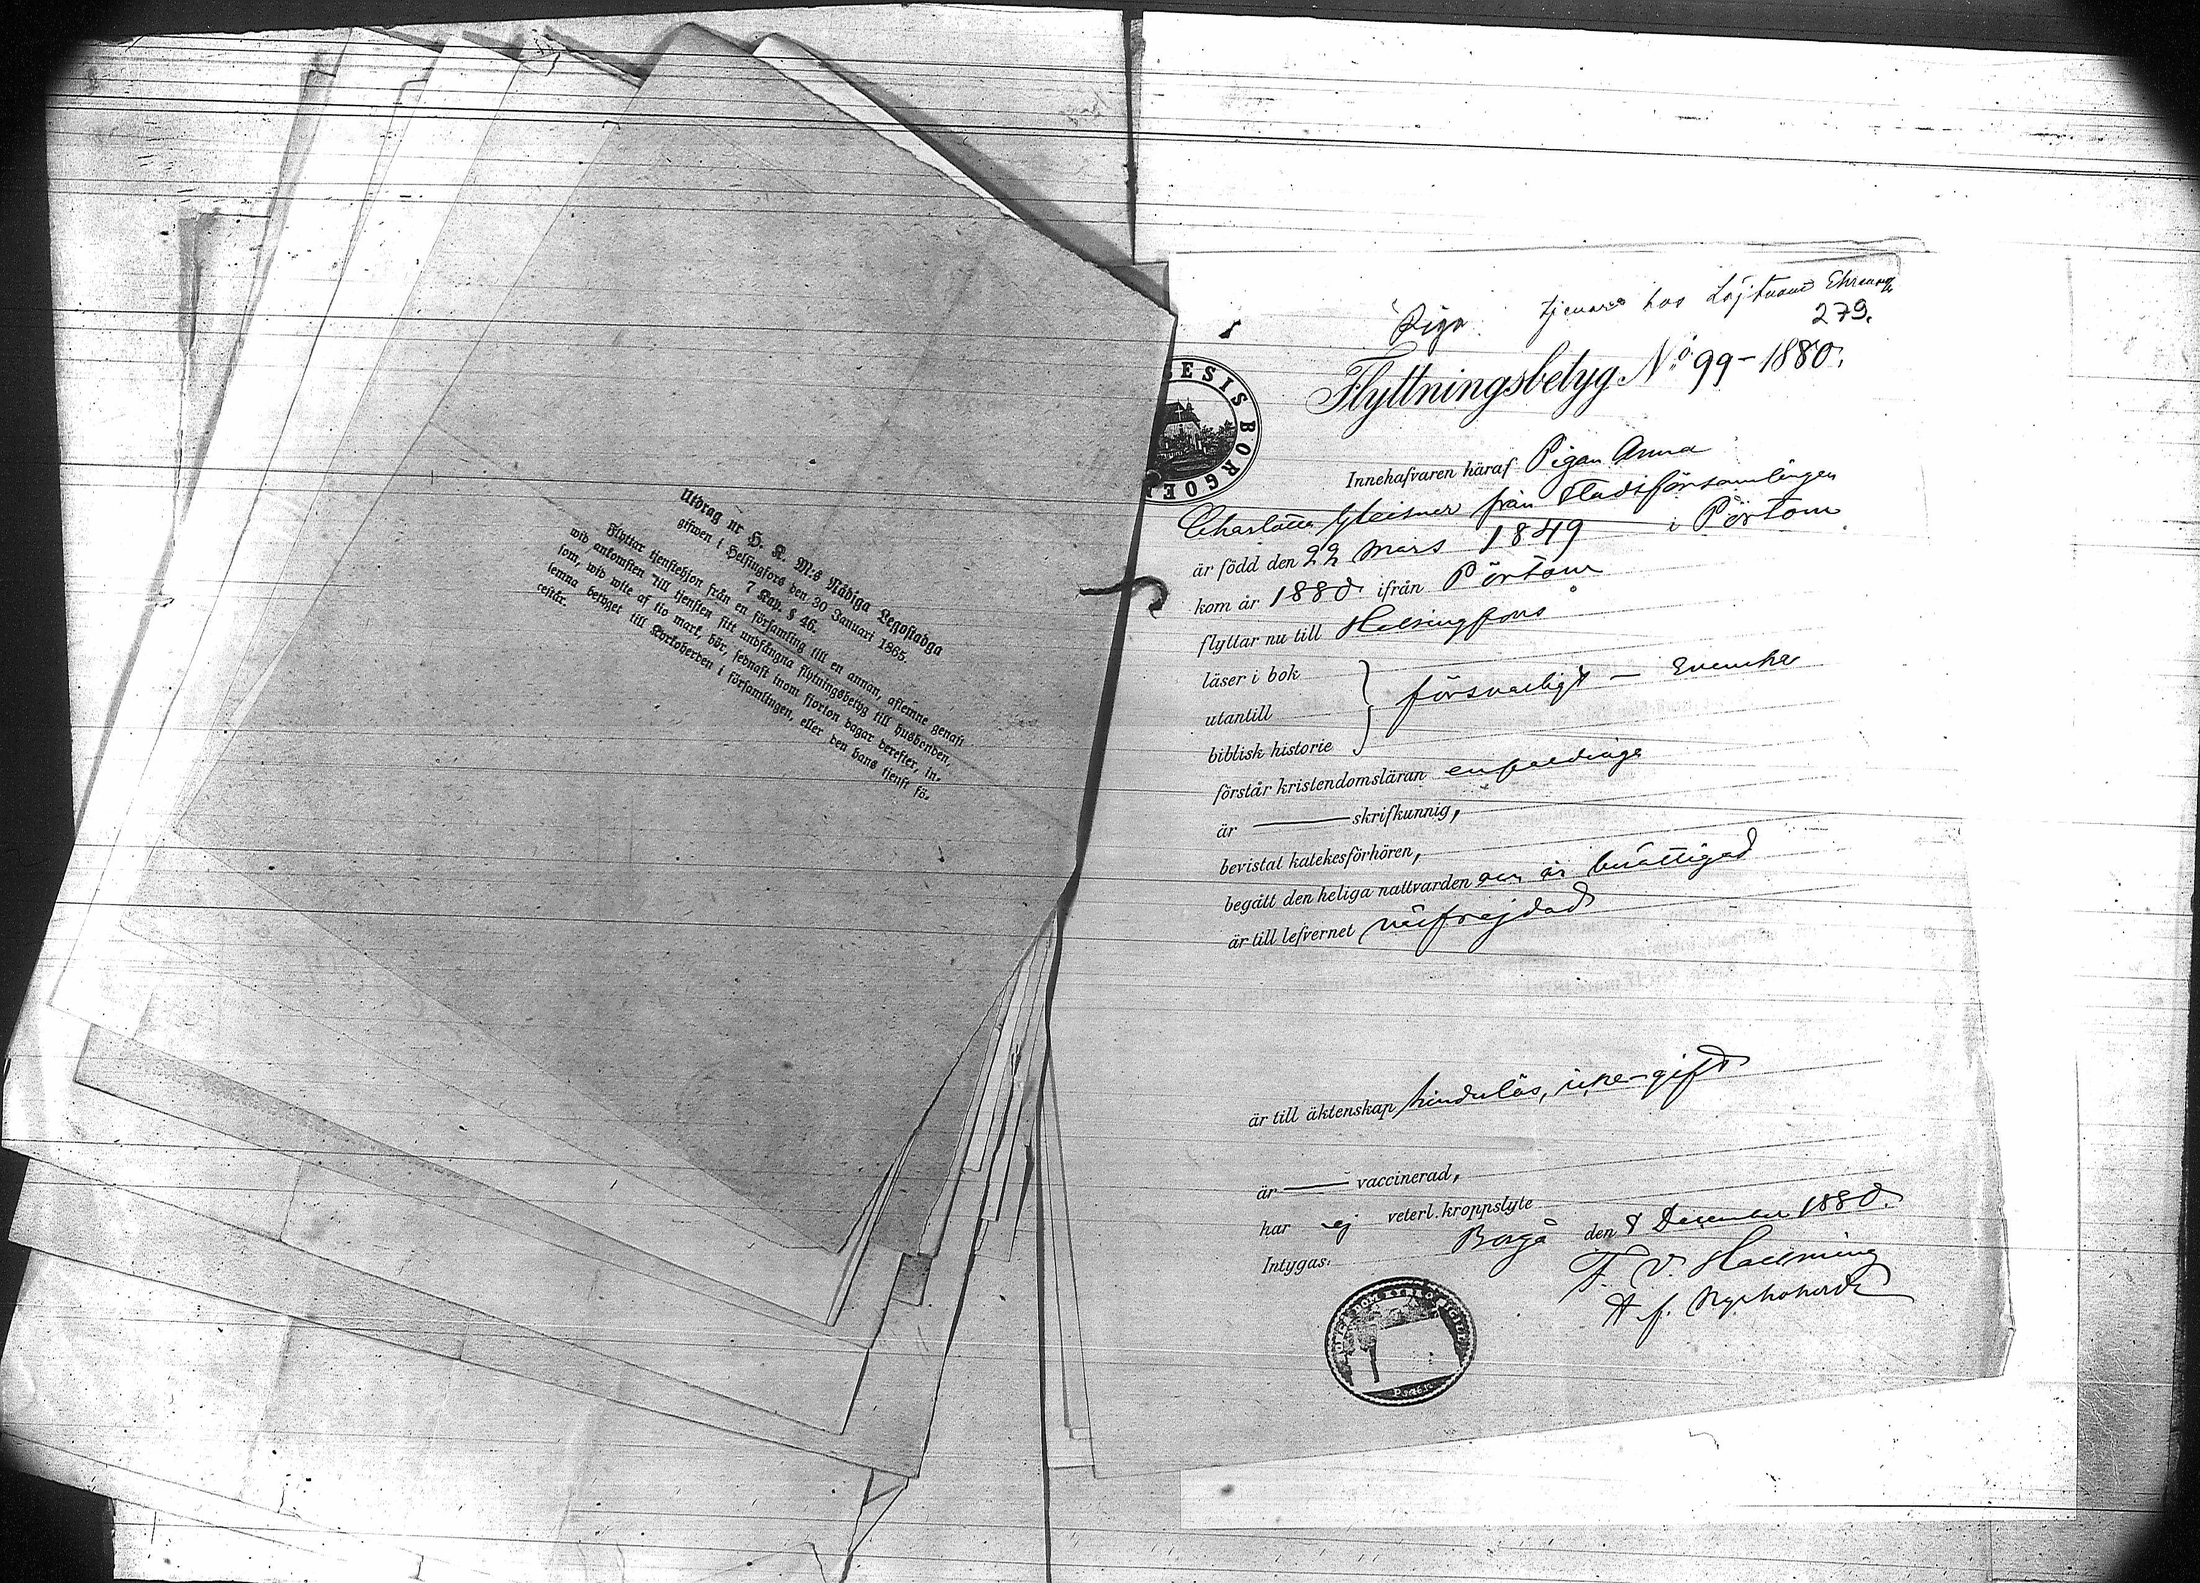 Utdrag ur H. K. M:s Nådiga Legostadga
gifwen i Helsingfors den 30 Januari 1865.
7 Kap. § 46.
Flyttar tjenstehjon från en församling till en annan, aflemne genast
wid ankomsten till tjensten sitt undfångna flyttningsbetyg till husbonden,
som, wid wite af tio mark, bör, sednast inom fjorton dagar derefter, in-
lemna betyget till Kyrkoherden i församlingen, eller den hans tjenst fö-
restår.
Piga tjenar hos Löjtnant
279.
Flyttningsbetyg No 99-1880.
BORGOE
Innehafvaren häraf Pigan Anna
Charlotta från Stadsförsamlingen
är född den 22 Mars 1849 i Pörtom
kom år 1880 ifrån Pörtom
flyttar nu till Helsingfors
läser i bok
utantill } försvarligt — Svenska
biblisk historie
förstår kristendomsläran enfaldeliga
är ——— skrifkunnig,
bevistat katekesförhören,
begått den heliga nattvarden och är berättigad
är till lefvernet välfrejdad
är till äktenskap hinderlös, icke gift
är ——— vaccinerad,
har ej veterl. kroppslyte
Intygas: Borgå den 8 December 1880.
F. V.